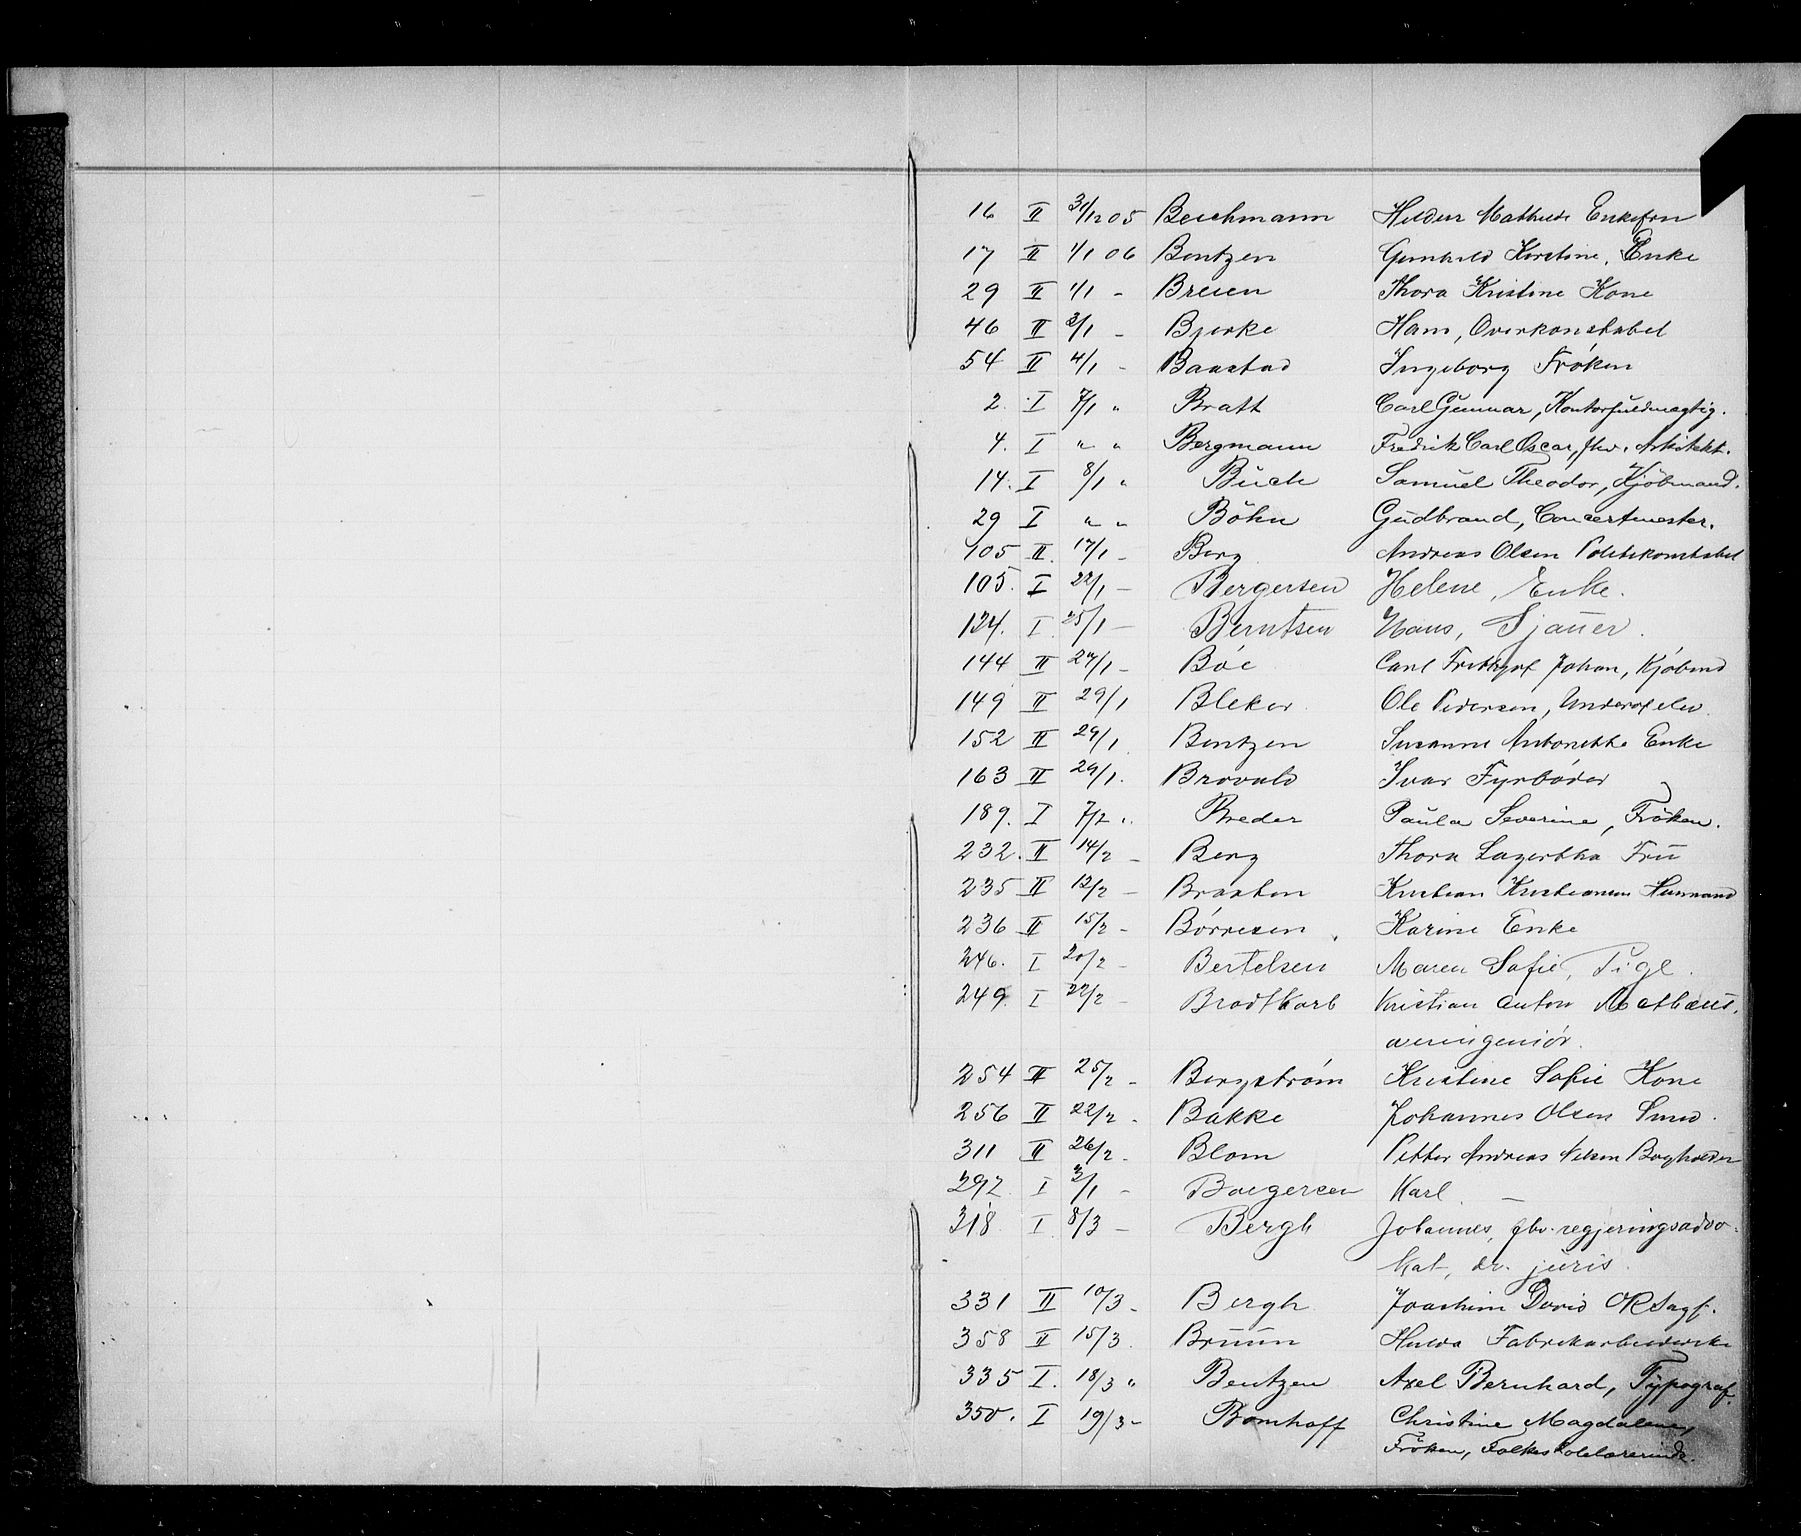 16 II 31/12 05 Beichmann Heldur Mathilde Enkefru
17 II 1/1 06 Bentzen Gunhild Kirstine, Enke
29 II 1/1 - Breien Thora Kristine Kone
46 II 3/1 - Bjerke Hans, Overkonstabel
54 II 4/1 - Baastad Ingeborg Frøken
2. I 7/1 " Bratt Carl Gunnar, Kontorfuldmægtig.
4. I " " Bergmann Fredrik Carl Oscar, fhv. Arkitekt.
14. I 8/1 " Buch Samuel Theodor, Kjöbmand.
29 I " " Böhn Gudbrand, Concertmester.
105 II. 17/1 - Berg Andreas Olsen Politikonstabel
105. I 22/1 - Bergersen Helene, Enke.
124. I. 25/1 - Berntsen Hans, Sjauer.
144 II 27/1 - Bøe Carl Frithjof Johan, Kjøbmd
149 II 29/1 Bleker. Ole Pedersen, Underofelev.
152 II 29/1 Bentzen Susanne Antonette Enke
163 II 29/1. Brovold Ivar Fyrbøder
189. I 7/2 " Breder Paula Severine, Fröken.
232. II 14/2 - Berg Thora Lagertha Fru
235 II 12/2 - Braaten Kristian Kristiansen Husmand
236 II 15/2 - Børresen Karine Enke
246. I 20/2 - Bertelsen Maren Sofie, Pige.
249. I 22/2 - Bradtkorb Kristian Anton Mathæus,
averingeniör.
254 II 25/2 - Bergstrøm Kristine Sofie Kone
256 II 22/2 - Bakke Johannes Olsen Smed.
311 II 26/2 - Blom Petter Andreas Nilsen Bogholder
292. I 3/1 - Borgersen Karl. -
318. I. 8/3 - Bergh Johannes, fhv. regjeringsadvo-
kat, dr. juris.
331 II 10/3 - Bergh Joachim David ORSagf.
358 II 15/3. Bruun Hulda Fabrikarbeiderske
335 I. 18/3 " Bentzen Axel Bernhard, Typograf.
350. I 19/3 - Bomhoff Christine Magdalene,
Fröken, Folkeskolelærerinde.